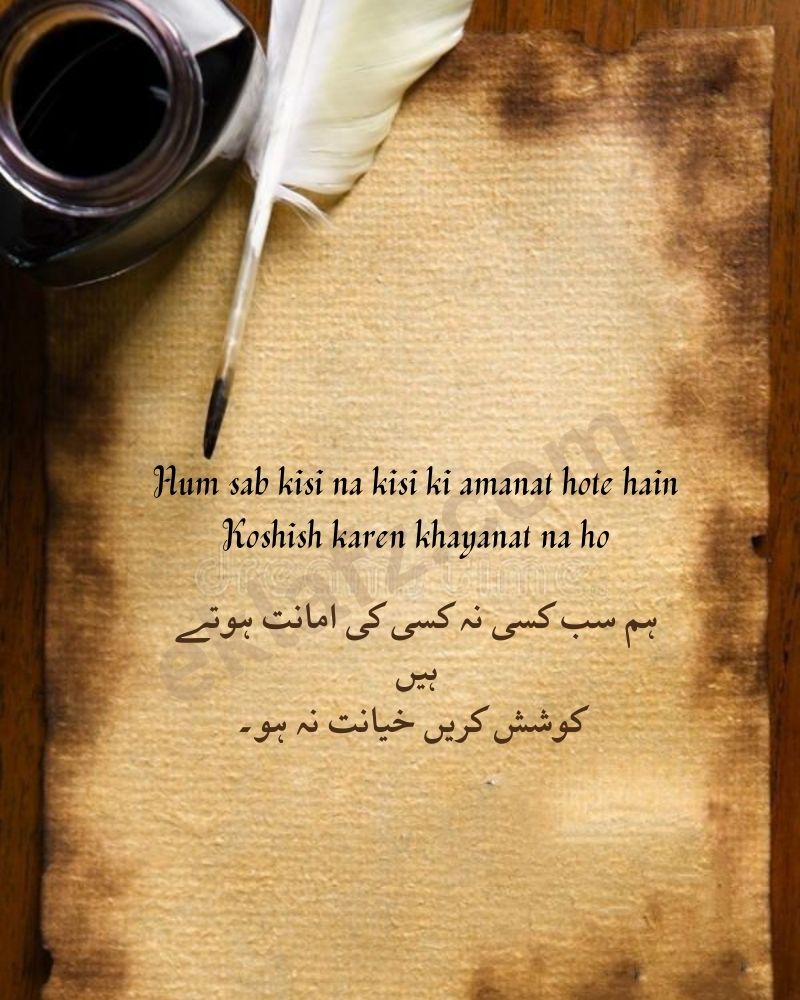 Hum sab kisi na kisi ki amanat hote hain
Koshish karen khayanat na ho
ہم سب کسی نہ کسی کی امانت ہوتے
ہیں
کوشش کریں خیانت نہ ہو۔